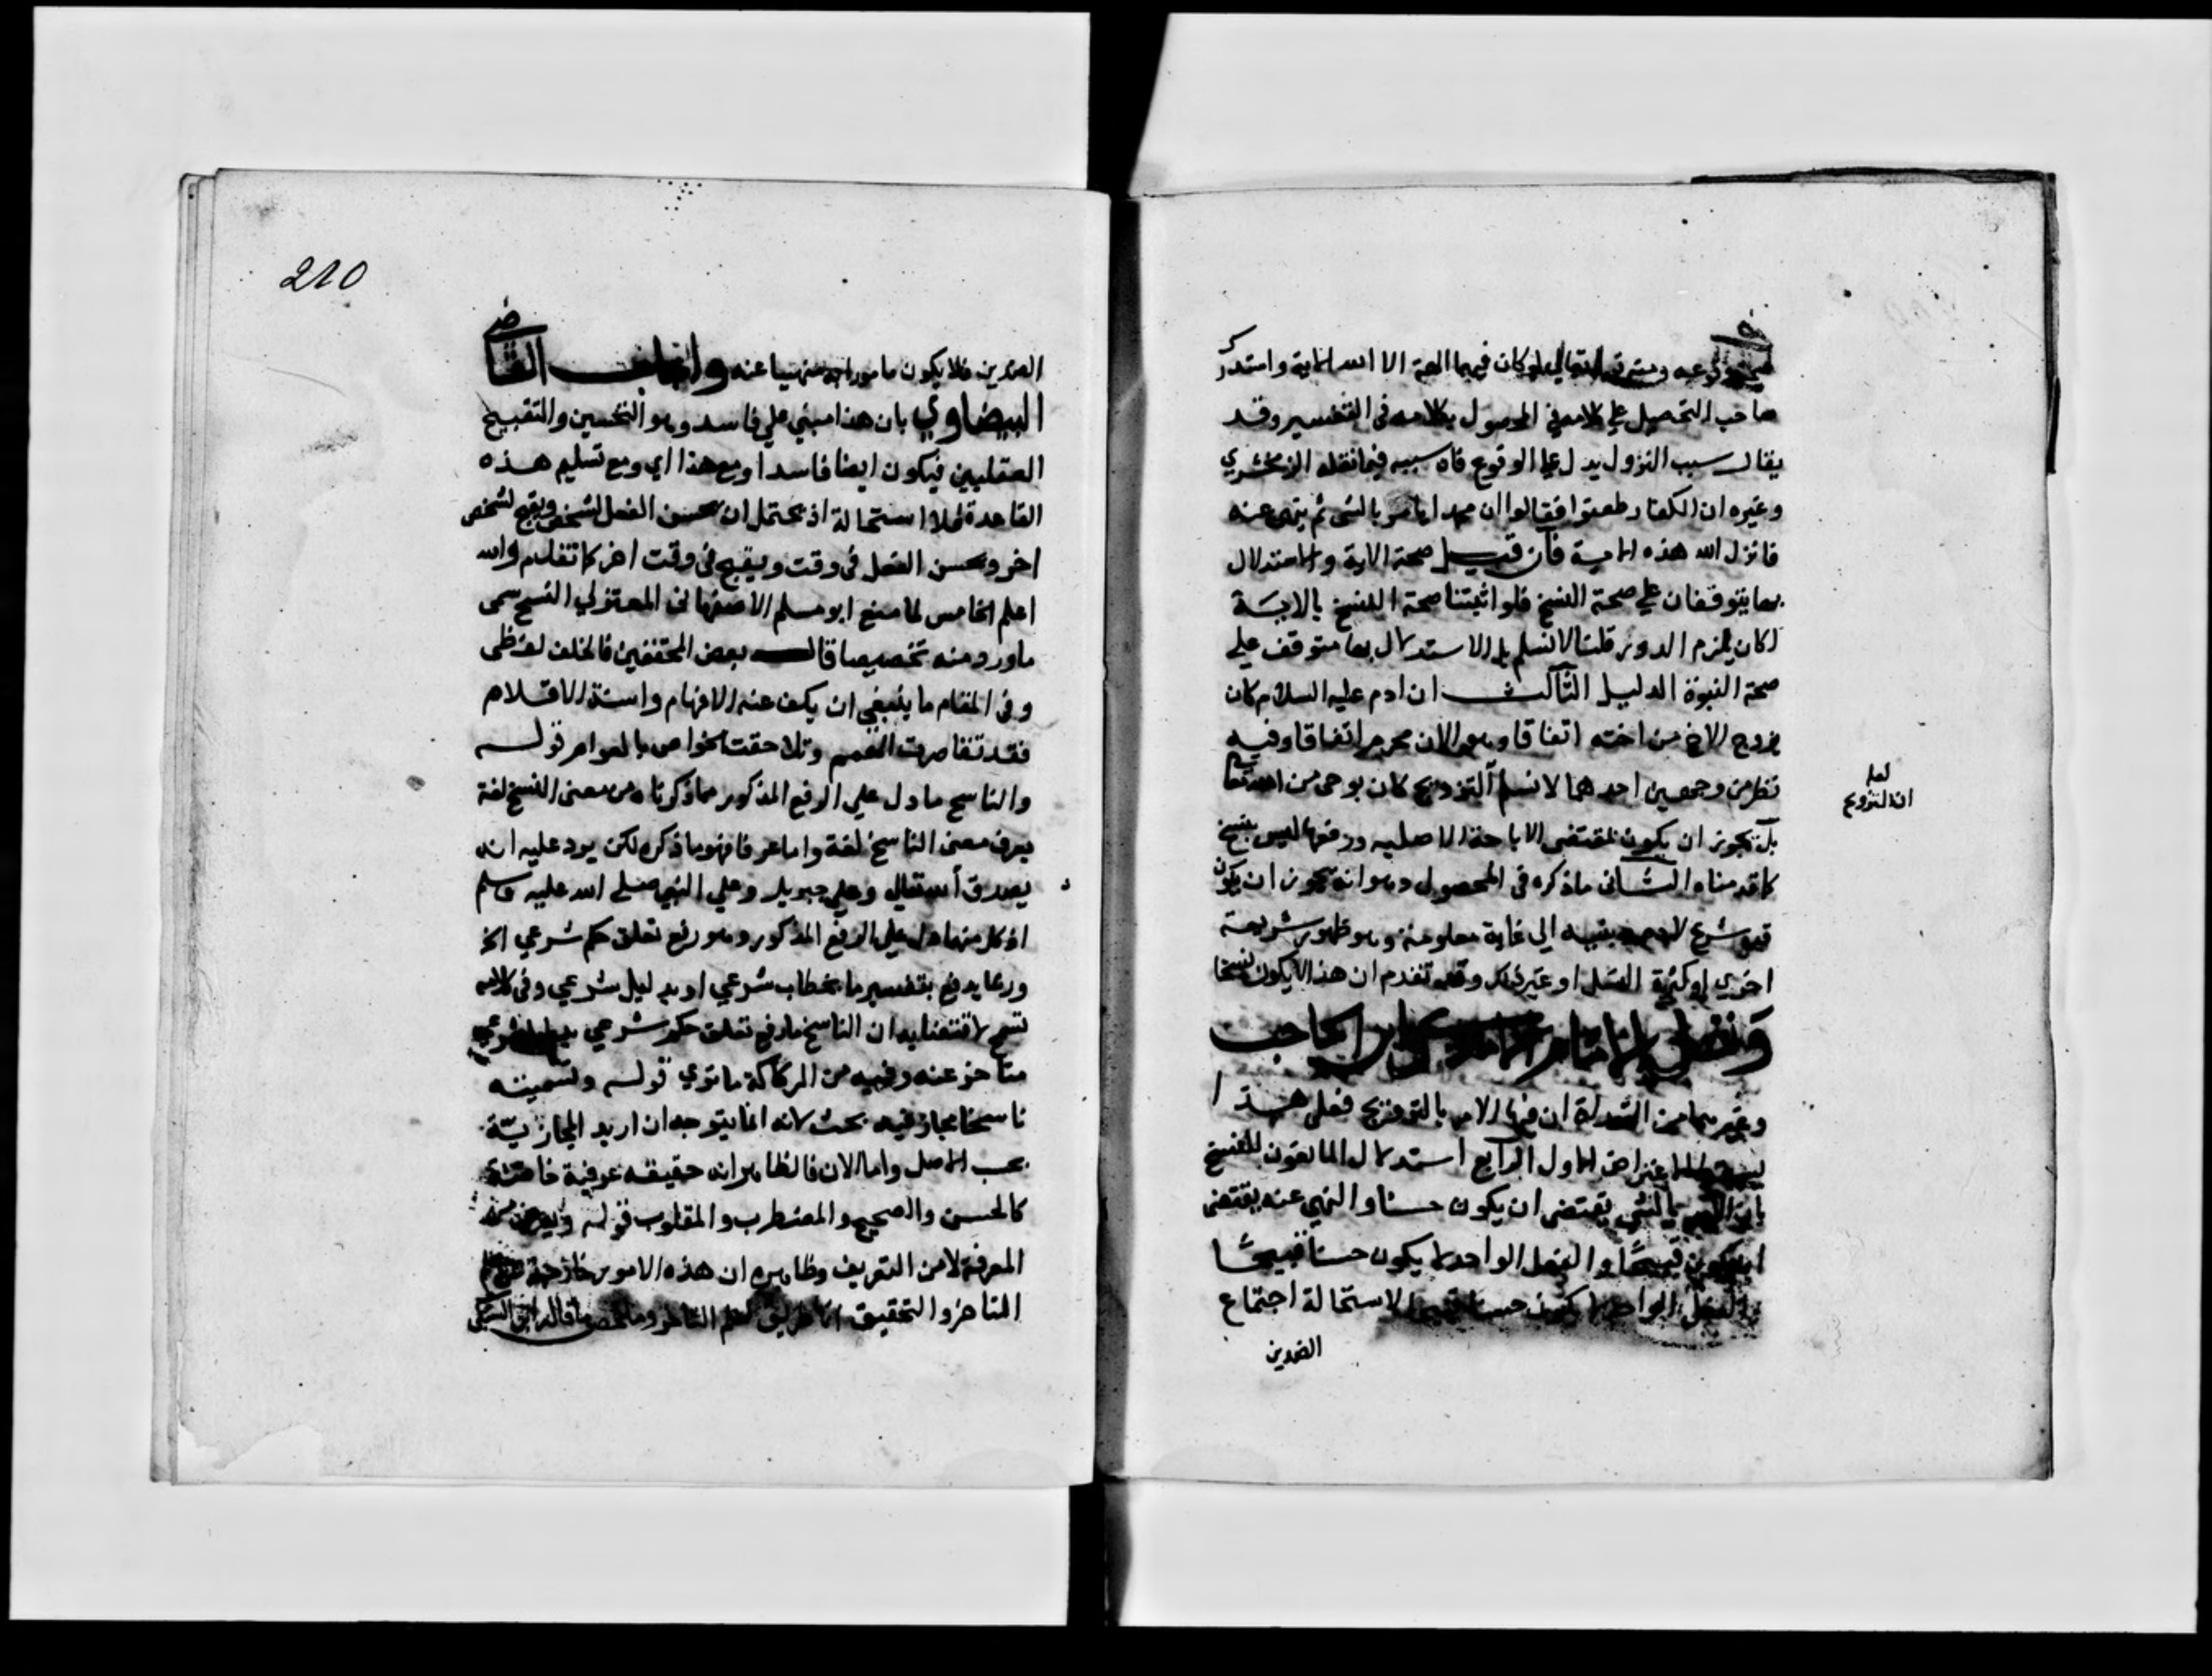 وقوعه ومنه قوله تعالي لوكان فيهما الهة الا الله الاية واستدرك
صاحب التحصيل علي كلامه في المحصول بكلامه في التفسير وقد
يقال سبب النزول يدل علي الوقوع فان سببه فيما نقله الزمخشري
وغيره ان الكفار طعنوا فقالوا ان محمدا يامر بالشي ثم ينهى عنه
فانزل الله هذه الاية فان قيل صحة الاية والاستدلال
بها يتوقفان علي صحة النسخ فلو اثبتنا صحة النسخ بالاية
لكان يلزم الدور قلنا لا نسلم بل الاستدلال بها متوقف علي
صحة النبوة الدليل الثالث ان ادم عليه السلام كان
يزوج الاخ من اخته اتفاقا وهو الان محرم اتفاقا وفيه
نظر من وجهين احدهما لا نسلم التزويج كان بوحي من الله تعالى
بل يجوز ان يكون بمقتضى الاباحة الاصلية ورفعها ليس بنسخ
كما قدمناه والثاني ماذكره في المحصول وهو انه يجوز ان يكون
شرع لادم وبنيه الي غاية معلومة وهو ظهور شريعة
اخري او كثرة النسل او غير ذلك وقد تقدم ان هذا لا يكون نسخا
ونقل الامام وابن الحاجب
وغيرهما من التوراة ان فيها الامر بالتزويج فعلى هذا
الاعتراض الاول الرابع استدلال المانعون للنسخ
بان الامر بالشي يقتضى ان يكون حسنا والنهي عنه يقتضى
ان يكون قبيحا والفعل الواحد لا يكون حسنا قبيحًا
والفعل الواحد لا يكون حسنا قبيحا لاستحالة اجتماع
الضدين
لعله
ان التزويج
210
الضدين فلا يكون مامورا به منهيا عنه واجاب القاضي
البيضاوي بان هذا مبني علي فاسد وهو التحسين والتقبيح
العقليين فيكون ايضا فاسدا ومع هذا اي ومع تسليم هذه
القاعدة فلا استحالة اذ يحتمل ان يحسن الفعل لشخص ويقبح لشخص
اخر ويحسن الفعل في وقت ويقبح في وقت اخر كما تقدم والله
اعلم الخامس لما منع ابو مسلم الاصفهاني المعتزلي النسخ سمى
ماورد منه تخصيصا قال بعض المحققين فالخلف لفظي
وفي المقام ما ينبغي ان يكف عنه الافهام واسنة الاقلام
فقد تقاصرت الهمم وتلاحقت الخواص بالعوام قوله
والناسخ مادل علي الرفع المذكور مماذكرناه من معنى النسخ لغة
يعرف معنى الناسخ لغة واما عرفا فهو ماذكره لكن يرد عليه انه
يصدق الله تعالي وعلي جبريل وعلي النبي صلي الله عليه وسلم
اذ كل منها دل علي الرفع المذكور وهو رفع تعلق حكم شرعي الخ
وربما يدفع بتفسير ما بخطاب شرعي او بدليل شرعي وفي كلامه
تسمح لاقتضايه ان الناسخ مارفع تعلق حكم شرعي بدليل شرعي
متاخر عنه وفيه من الركاكة ماتري قوله وتسميته
ناسخا مجاز فيه بحث لانه انما يتوجه ان اريد المجازيّة
بحسب الاصل واما الان فالظاهر انه حقيقة عرفية خاصة
كالحسن والصحيح والمضطرب والمقلوب قوله
المعرفة لا من التعريف وظاهره ان هذه الامور خارجة
المتاخر والتحقيق انها طريق لعلم التاخر وملخص ماقاله ابن السبكي